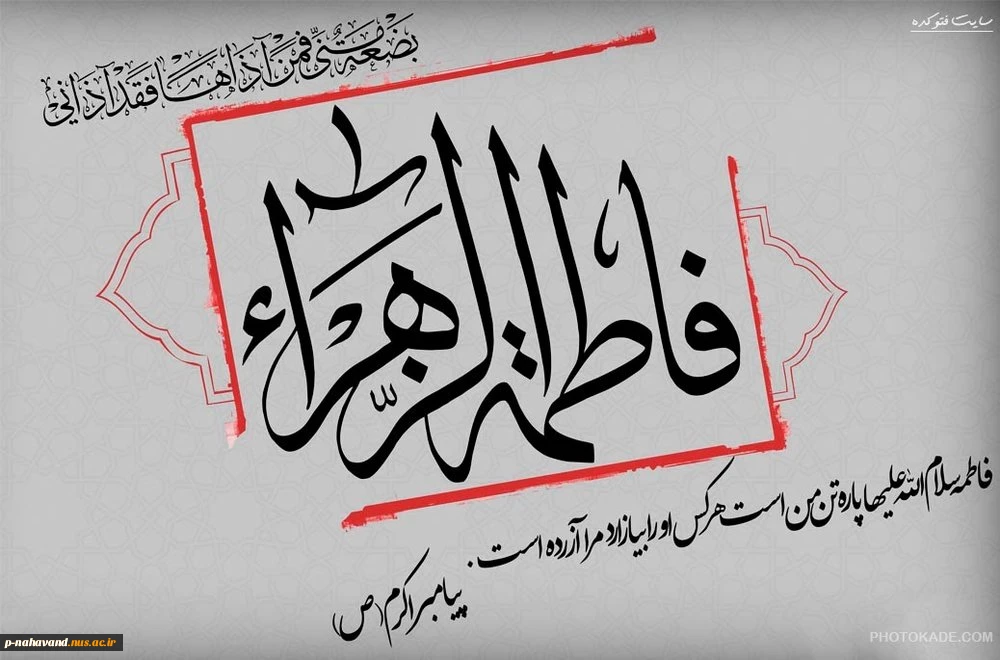 سایت فتوکده
بضعة منّي فمن آذاها فقد آذاني
فاطمة الزّهراء
فاطمه سلام الله علیها پاره تن من است هر کس او را بیازارد مرا آزرده است.
پیامبر اکرم (ص)
p-nahavand.nus.ac.ir
PHOTOKADE.COM